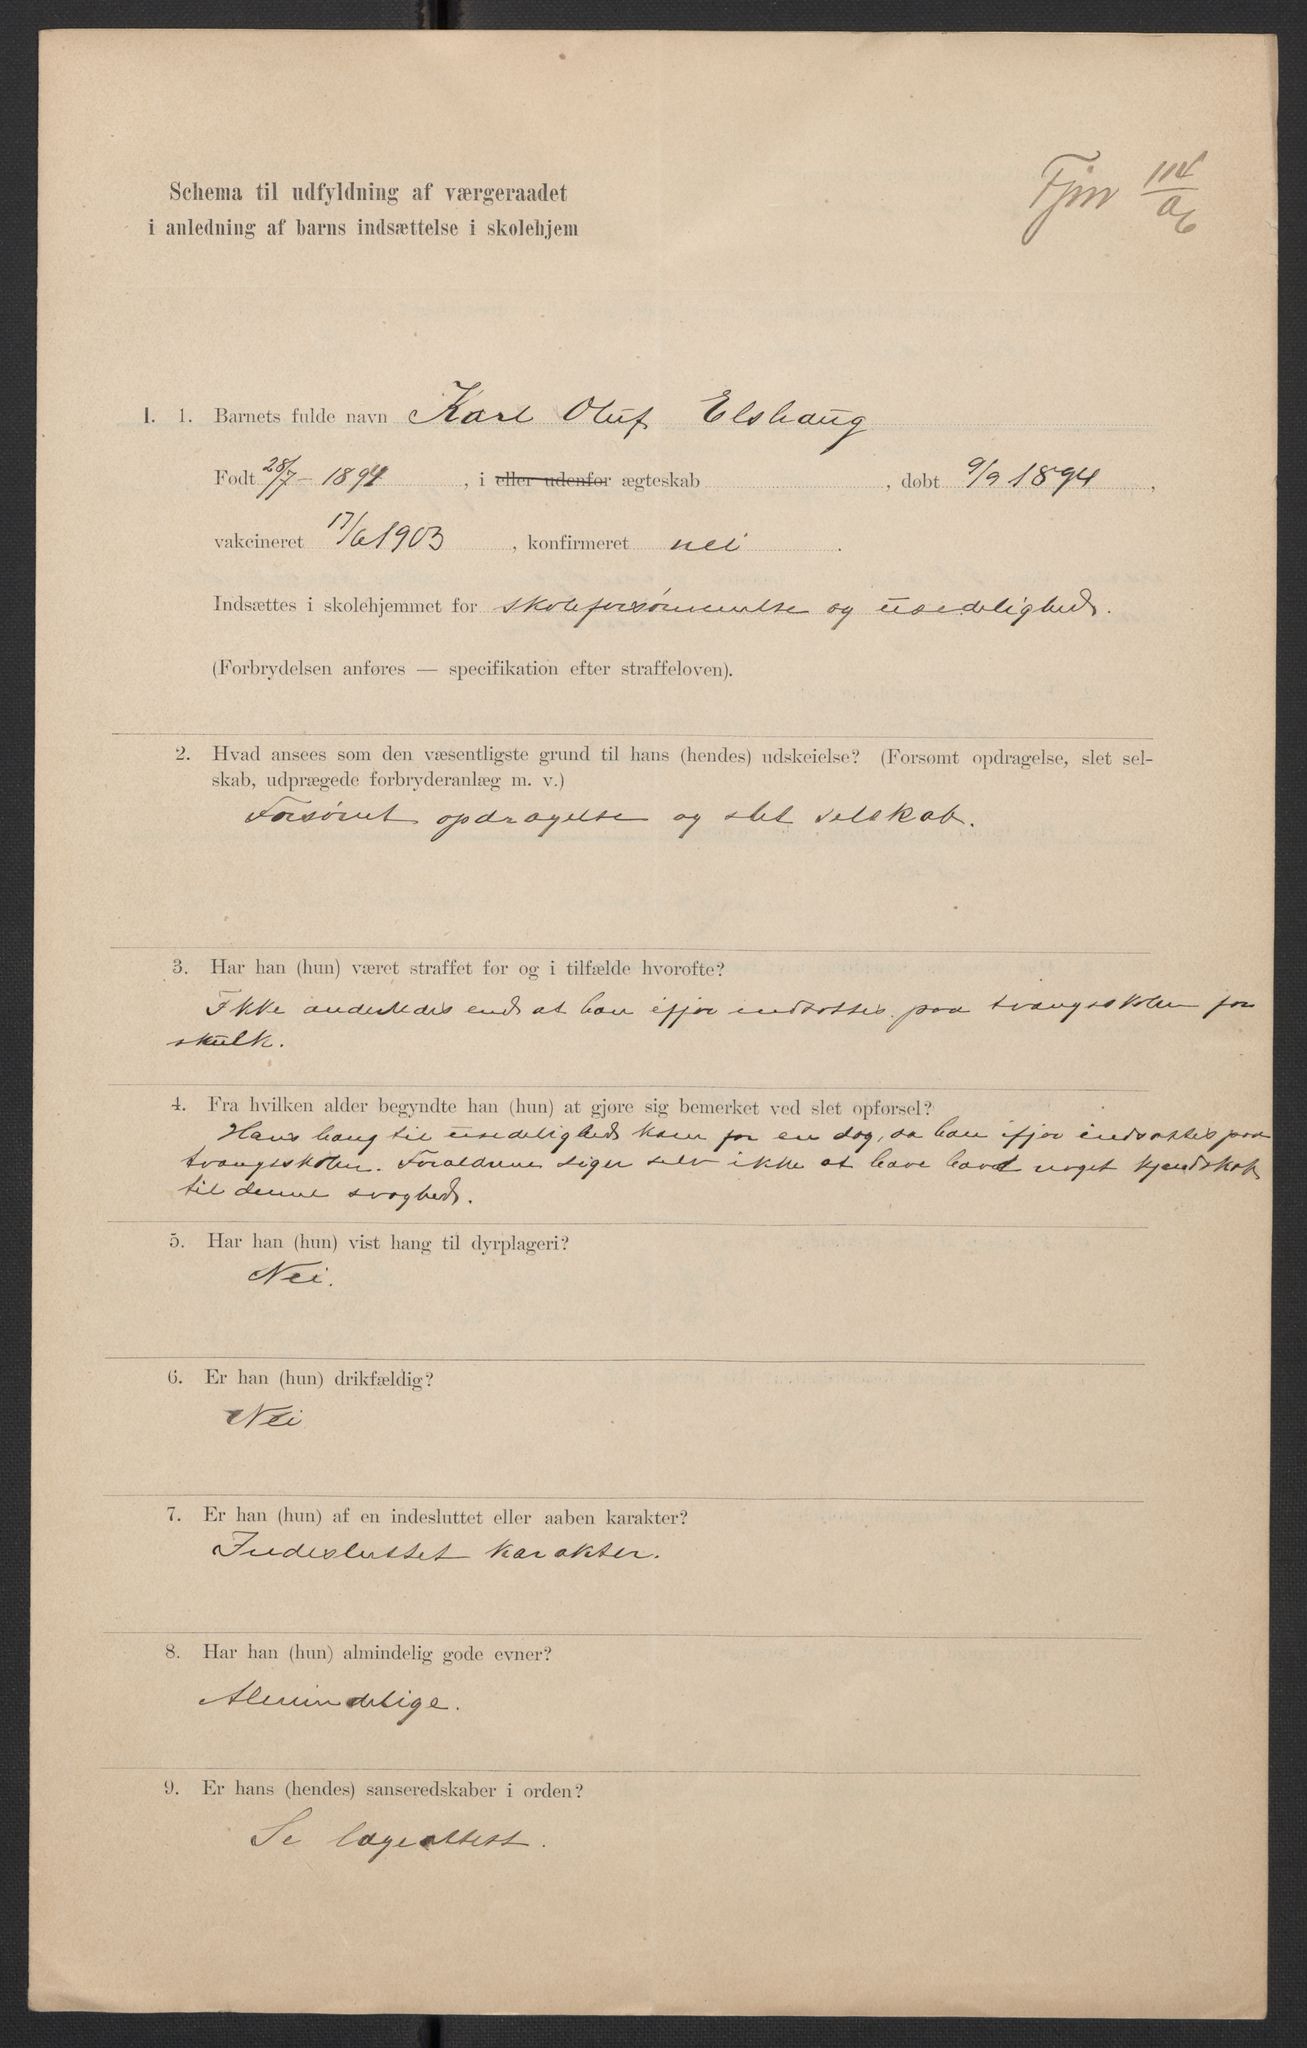 Schema til udfyldning af værgeraadet
i anledning af barns indsættelse i skolehjem
114/06
I. 1. Barnets fulde navn Karl Oluf Elshaug
Født 28/7 - 1894, i eller udenfor ægteskab , døbt 9/9 1894,
vakcineret 17/6 1903, konfirmeret nei.
Indsættes i skolehjemmet for skoleforsømmelse og usedelighed.
(Forbrydelsen anføres — specifikation efter straffeloven).
2. Hvad ansees som den væsentligste grund til hans (hendes) udskeielse? (Forsømt opdragelse, slet sel-
skab, udprægede forbryderanlæg m. v.)
Forsømt opdragelse og slet selskab.
3. Har han (hun) været straffet før og i tilfælde hvorofte?
Ikke anderledes end at han ifjor indsattes paa tvangsskolen for
skulk.
4. Fra hvilken alder begyndte han (hun) at gjøre sig bemerket ved slet opførsel?
Hans hang til usedelighed kom for en dag, da han ifjor indsattes paa
tvangsskolen. Forældrene siger selv ikke at have havt noget kjendskab
til denne svaghed.
5. Har han (hun) vist hang til dyrplageri?
Nei.
6. Er han (hun) drikfældig?
Nei
7. Er han (hun) af en indesluttet eller aaben karakter?
Indesluttet karakter.
8. Har han (hun) almindelig gode evner?
Almindelige.
9. Er hans (hendes) sanseredskaber i orden?
Se lægeattest.